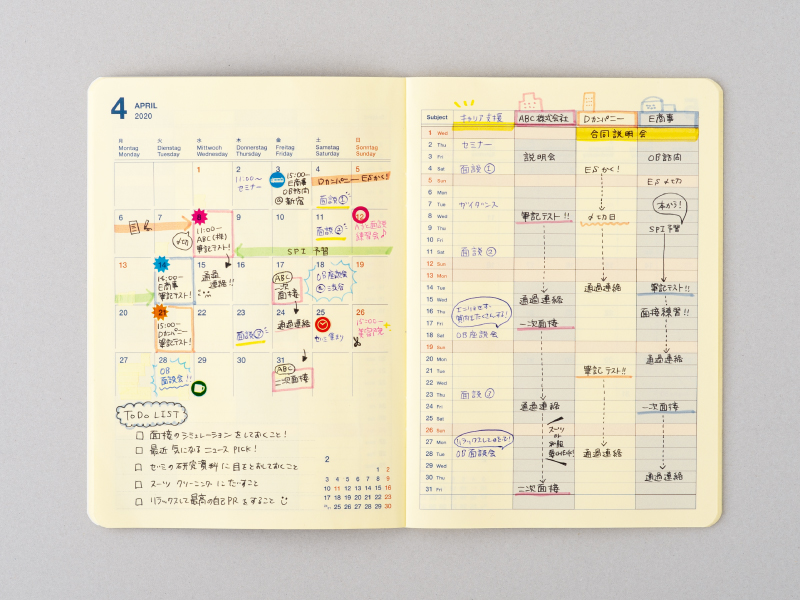 4 APRIL
2020
月 火 水 木 金 土 日
Montag Dienstag Mittwoch Donnerstag Freitag Samstag Sonntag
Monday Tuesday Wednesday Thursday Friday Saturday Sunday
1 2 3 4 5
11:00〜
セミナー
15:00〜
E商事
OB訪問
@新宿
Dカンパニー ESかく!
面談①
6 7 8 9 10 11 12
〆切
11:00〜
ABC(株)
筆記テスト!
面談②
練習会♪
SPI 予習
13 14 15 16 17 18 19
14:00〜
E商事
筆記テスト!
通過
連絡!!
ABC
一次
面接
OB座談会
@渋谷
20 21 22 23 24 25 26
15:00〜
Dカンパニー
筆記テスト!
面談②
通過連絡
ゼミ集まり
15:00〜
美容院
27 28 29 30 31
OB
面談会!!
ABC
二次面接
ToDo LIST
□ 面接のシミュレーションをしておくこと!
□ 最近気になるニュースPICK!
□ ゼミの研究資料に目をとおしておくこと
□ スーツ クリーニングにだすこと
□ リラックスして最高の自己PRをすること
2
1 2
3 4 5 6 7 8 9
10 11 12 13 14 15 16
17 18 19 20 21 22 23
25 26 27 28 29 30
Subject キャリア支援 ABC株式会社 Dカンパニー E商事
1 Wed 合同説明会
2 Thu セミナー
3 Fri 説明会 OB訪問
4 Sat 面談① ESかく!
5 Sun ESメ切
6 Mon
7 Tue ガイダンス 本かう!
8 Wed 筆記テスト!! 〆切日
9 Thu SPI予習
10 Fri
11 Sat 面談②
12 Sun
13 Mon
14 Tue 通過連絡 筆記テスト!!
15 Wed 通過連絡
16 Thu 面接練習!!
17 Fri 一次面接
18 Sat OB座談会
19 Sun
20 Mon 通過連絡
21 Tue 筆記テスト!!
22 Wed
23 Thu 面談②
24 Fri 通過連絡 一次面接
25 Sat
26 Sun スーツ
27 Mon リラックスしてのぞむ!
28 Tue OB面談会 通過連絡
29 Wed
30 Thu 通過連絡
31 Fri 二次面接